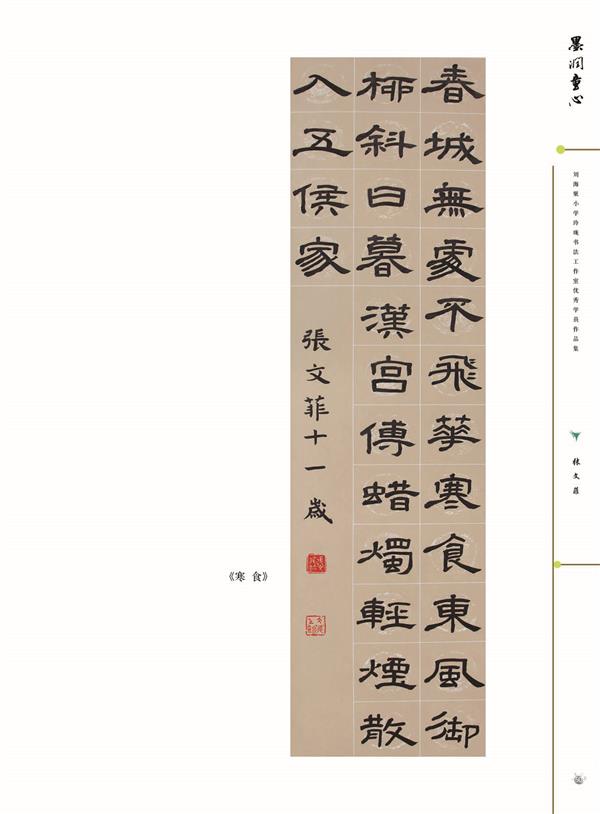 墨润童心
刘海粟小学书法工作室优秀学员作品集
张文菲
春城無處不飛華寒食東風御
柳斜日暮漢宮傳蜡燭輕煙散
入五侯家
張文菲十一歲
《寒 食》